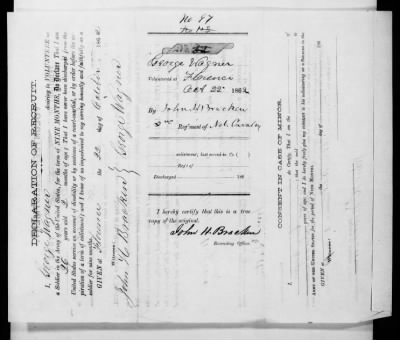 No 87
George Wagner
Volunteered at Florence
Oct 22" 1862
By John H Bracken
2nd Regiment of Neb. Cavalry
enlistment; last served in Co. ( )
Reg't of
Discharged 186
I hereby certify that this is a true
copy of the original.
John H. Bracken
Recruiting Officer.
DECLARATION OF RECRUIT.
I, George Wagner desiring to VOLUNTEER as
a Soldier in the Army of the United States, for the term of NINE MONTHS, Do Declare That I am
26 years and months of age; That I have never been discharged from the
United States service on account of disability or by sentence of a court-martial, or by order before the expiration
of a term of enlistment; and I know of no impediment to my serving honestly and faithfully as a
soldier for nine months.
GIVEN at Florence the 22 day of October 1862
Witness:
John H Bracken
George Wagner
CONSENT IN CASE OF MINOR.
I, Do Certify, That I am the
of the said
years of age; and I do hereby freely give my consent to his volunteering as a Soldier in the
Army of the United States for the period of Nine Months.
GIVEN at
the day of 186
Witness: